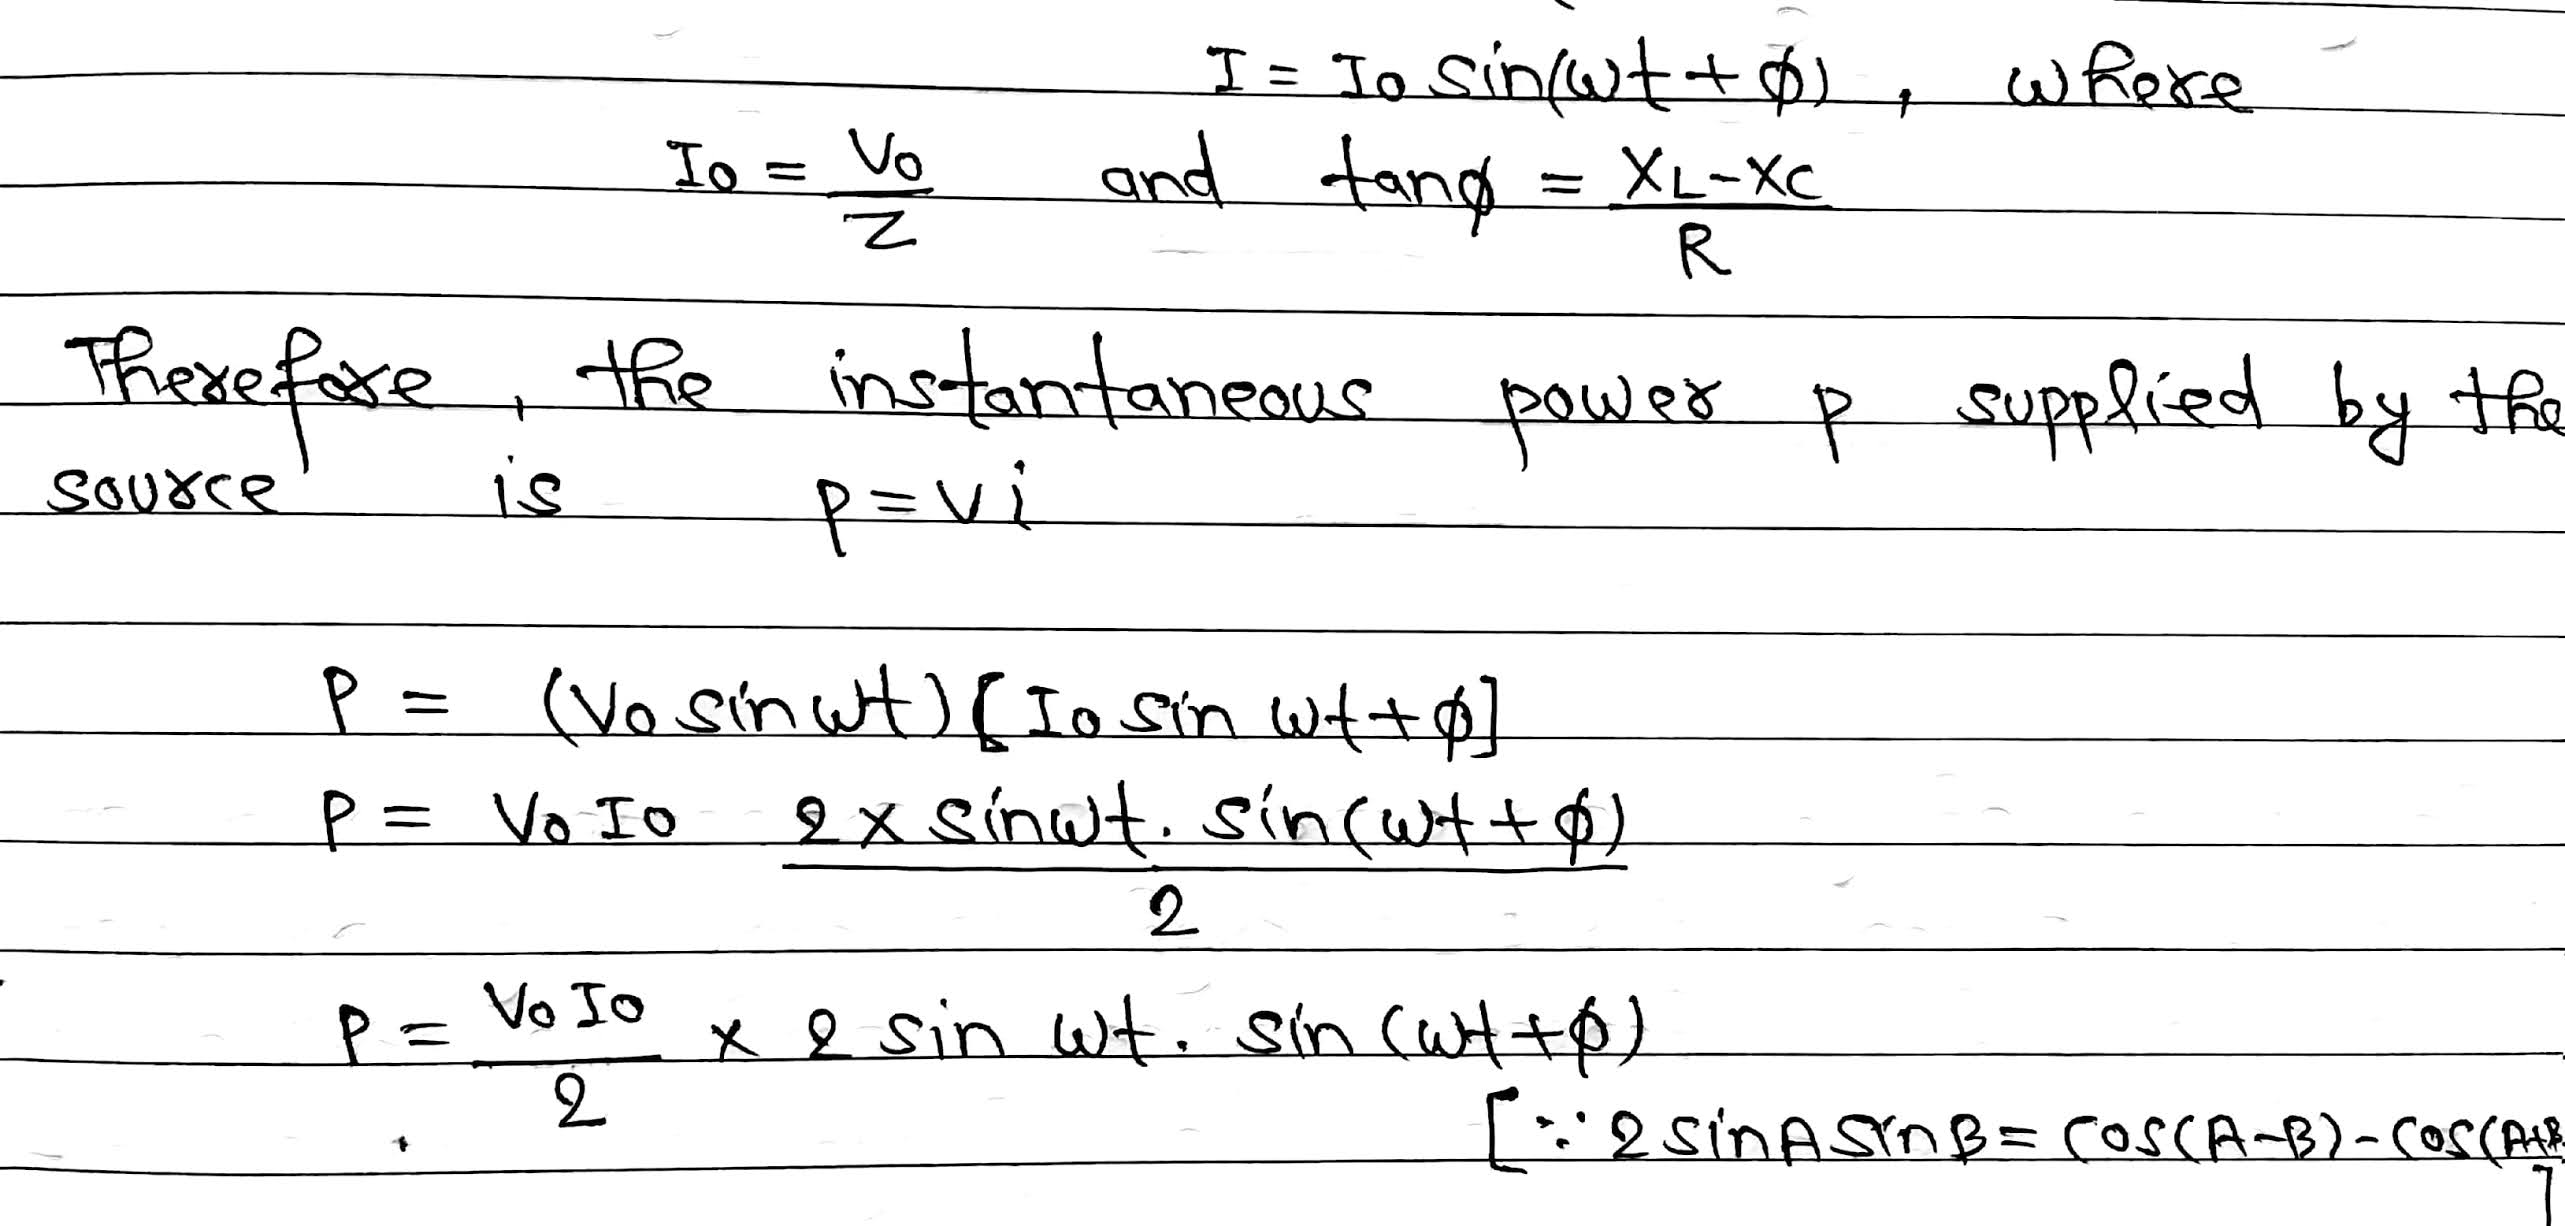 I = I0 sin(ωt + ϕ), where
I0 = V0/Z and tanϕ = XL-XC/R
Therefore, the instantaneous power p supplied by the
source is p = vi
P = (V0 sin ωt) [I0 sin ωt + ϕ]
P = V0 I0 2 x sinωt. sin(ωt + ϕ)/2
P = V0 I0/2 x 2 sin ωt. sin (ωt + ϕ)
[∵ 2 sinA sinB = cos(A-B) - cos(A+B
]